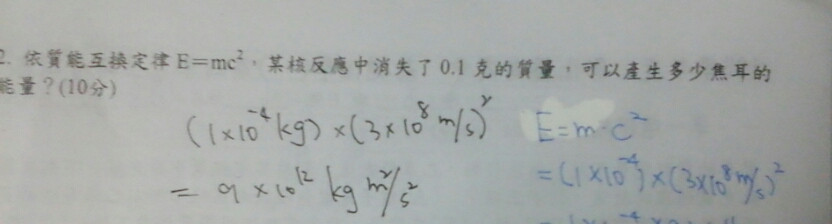 2. 依質能互換定律E=mc²，某核反應中消失了0.1克的質量，可以產生多少焦耳的
能量？(10分)
(1×10⁻⁴kg)×(3×10⁸m/s)²
= 9×10¹² kg m²/s²
E=m·c²
=(1×10⁻⁴)×(3×10⁸m/s)²